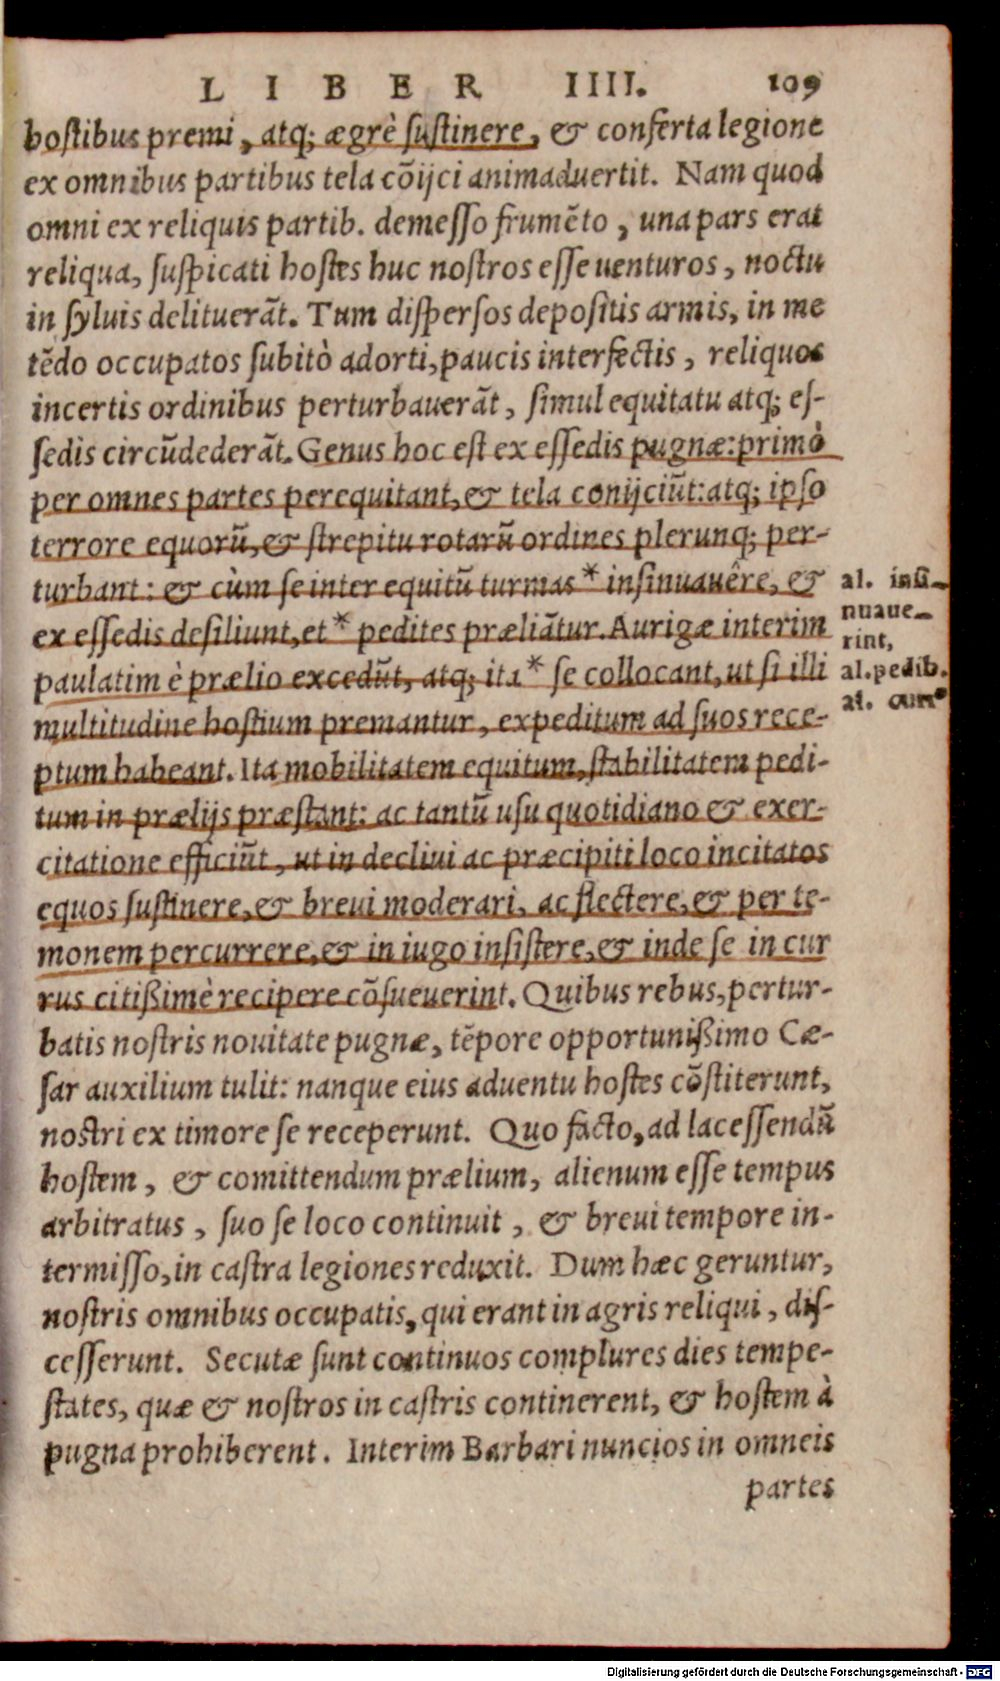 LIBER IIII. 109
hostibus premi, atq; ægrè sustinere, & conferta legione
ex omnibus partibus tela cõijci animaduertit. Nam quod
omni ex reliquis partib. demesso frumẽto, una pars erat
reliqua, suspicati hostes huc nostros esse uenturos, noctu
in syluis delituerãt. Tum dispersos depositis armis, in me
tẽdo occupatos subitò adorti, paucis interfectis, reliquos
incertis ordinibus perturbauerãt, simul equitatu atq; es-
sedis circũdederãt. Genus hoc est ex essedis pugnæ: primò
per omnes partes perequitant, & tela conijciũt: atq; ipso
terrore equorũ, & strepitu rotarũ ordines plerunq; per-
turbant: & cùm se inter equitũ turmas * insinuauêre, &
ex essedis desiliunt, et * pedites præliãtur. Aurigæ interim
paulatim è prælio excedũt, atq; ita * se collocant, ut si illi
multitudine hostium premantur, expeditum ad suos rece-
ptum habeant. Ita mobilitatem equitum, stabilitatem pedi-
tum in prælijs præstant: ac tantũ usu quotidiano & exer-
citatione efficiũt, ut in decliui ac præcipiti loco incitatos
equos sustinere, & breui moderari, ac flectere, & per te-
monem percurrere, & in iugo insistere, & inde se in cur
rus citißimè recipere cõsueuerint. Quibus rebus, pertur-
batis nostris nouitate pugnæ, tẽpore opportunißimo Cæ-
sar auxilium tulit: nanque eius aduentu hostes cõstiterunt,
nostri ex timore se receperunt. Quo facto, ad lacessendũ
hostem, & comittendum prælium, alienum esse tempus
arbitratus, suo se loco continuit, & breui tempore in-
termisso, in castra legiones reduxit. Dum hæc geruntur,
nostris omnibus occupatis, qui erant in agris reliqui, dis-
cesserunt. Secutæ sunt continuos complures dies tempe-
states, quæ & nostros in castris continerent, & hostem à
pugna prohiberent. Interim Barbari nuncios in omneis
partes
al. insi-
nuaue-
rint,
al. pedib.
al. curr⁹
Digitalisierung gefördert durch die Deutsche Forschungsgemeinschaft - DFG